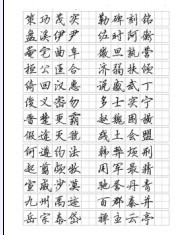 策功茂实　勒碑刻铭
盘溪伊尹　佐时阿衡
奄宅曲阜　微旦孰营
桓公匡合　济弱扶倾
绮回汉惠　说感武丁
俊义密勿　多士实宁
晋楚更霸　赵魏困横
假途灭虢　践土会盟
何遵约法　韩弊烦刑
起翦颇牧　用军最精
宣威沙漠　驰誉丹青
九州禹迹　百郡秦并
岳宗泰岱　禅主云亭